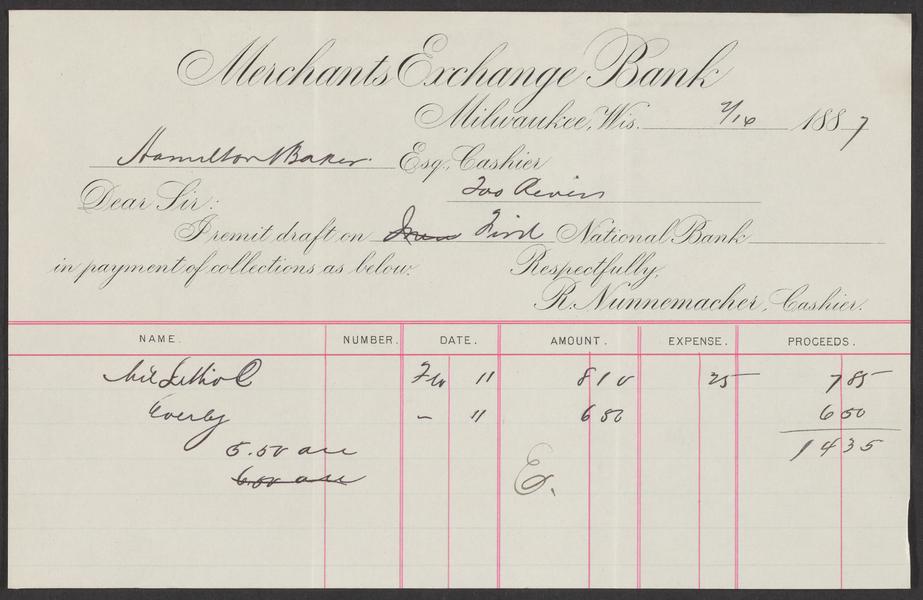 Merchants Exchange Bank
Milwaukee, Wis. 2/16 1887
Hamilton Baker. Esq., Cashier
Two Rivers
Dear Sir:
I remit draft on First National Bank
in payment of collections as below.
Respectfully,
R. Nunnemacher, Cashier.
NAME. NUMBER. DATE. AMOUNT. EXPENSE. PROCEEDS.
Mil Litho C 11 8 10 25 7 85
Everly – 11 6 50 6 50
5.50 14 35
E.